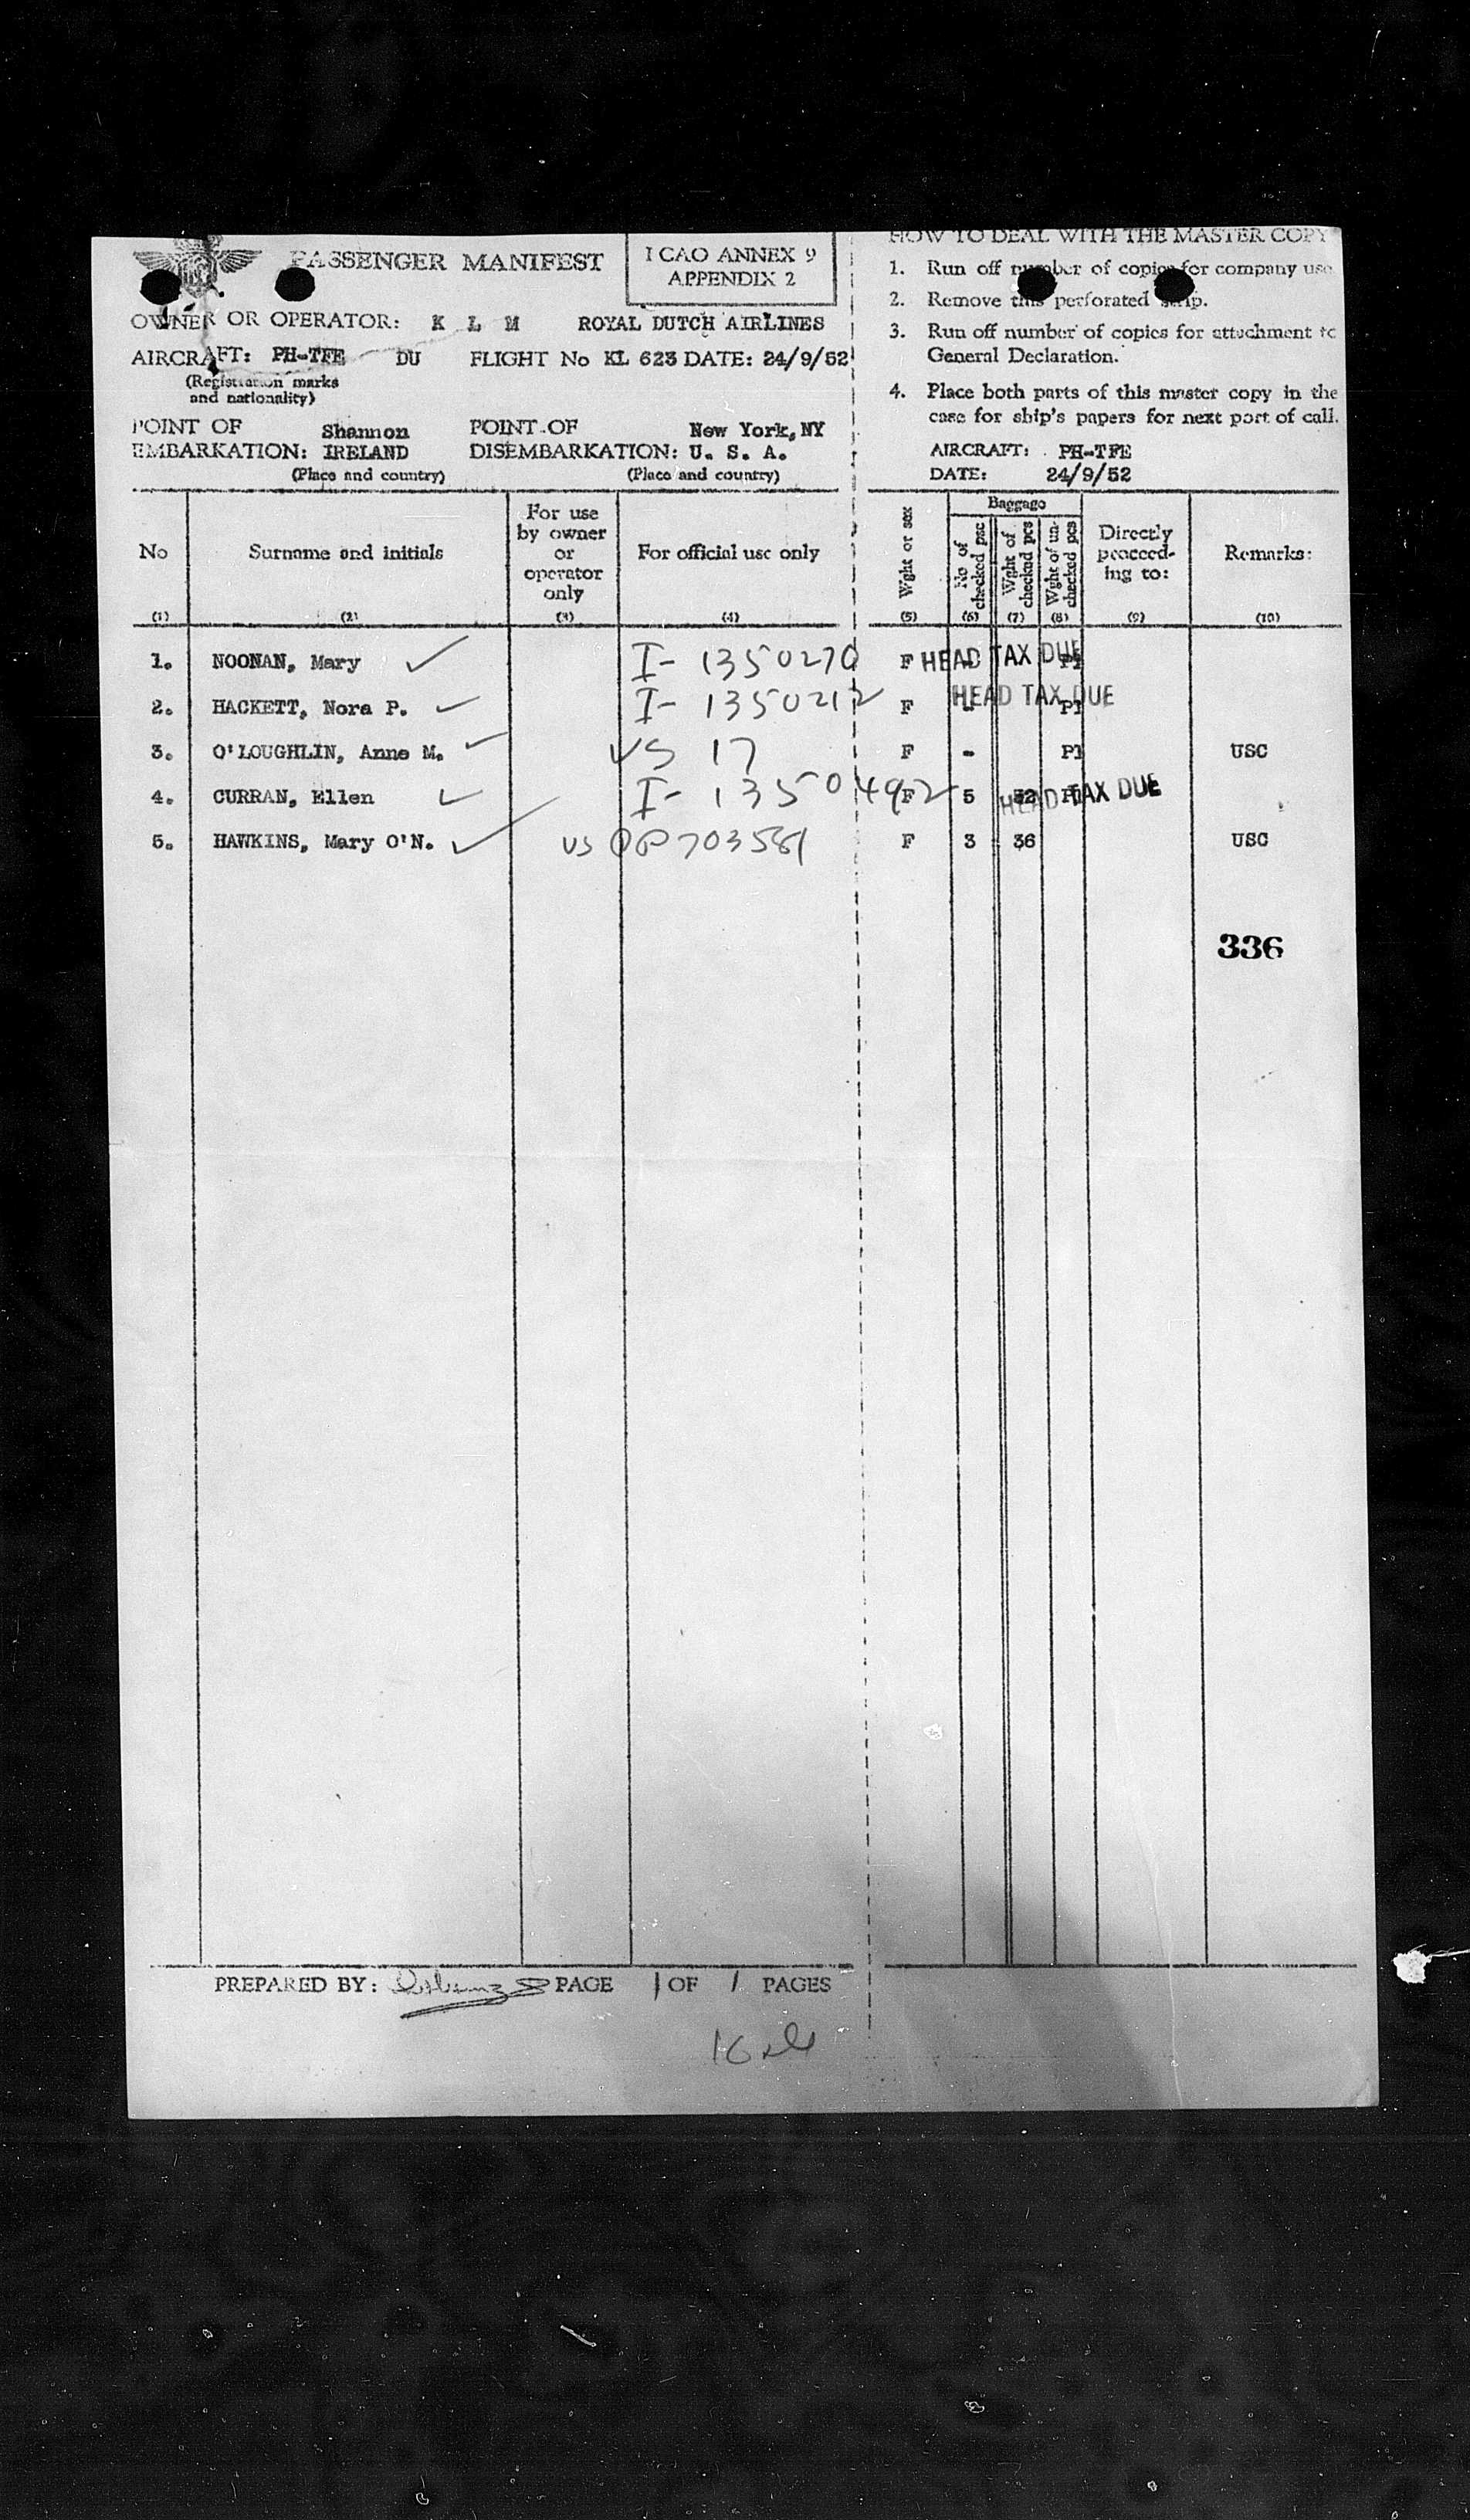 PASSENGER MANIFEST
I CAO ANNEX 9
APPENDIX 2
OWNER OR OPERATOR: K L M ROYAL DUTCH AIRLINES
AIRCRAFT: PH-TFE DU FLIGHT No KL 623 DATE: 24/9/52
(Registration marks
and nationality)
POINT OF Shannon POINT OF New York, NY
EMBARKATION: IRELAND DISEMBARKATION: U. S. A.
(Place and country) (Place and country)
HOW TO DEAL WITH THE MASTER COPY
1. Run off number of copies for company use
2. Remove this perforated strip.
3. Run off number of copies for attachment to
General Declaration.
4. Place both parts of this master copy in the
case for ship's papers for next port of call.
AIRCRAFT: PH-TFE
DATE: 24/9/52
No Surname and initials For use by owner or operator only For official use only Wght or sex Baggage No of checked psc Wght of checked pcs Wght of unchecked pcs Directly proceeding to: Remarks:
(1) (2) (3) (4) (5) (6) (7) (8) (9) (10)
1. NOONAN, Mary I- 1350270 F - HEAD TAX DUE
2. HACKETT, Nora P. I- 1350212 F - P1 HEAD TAX DUE
3. O'LOUGHLIN, Anne M. VS 17 F - P1 USC
4. CURRAN, Ellen I- 1350492 F 5 52 HEAD TAX DUE
5. HAWKINS, Mary O'N. US PP 703581 F 3 36 USC
336
PREPARED BY: PAGE 1 OF 1 PAGES